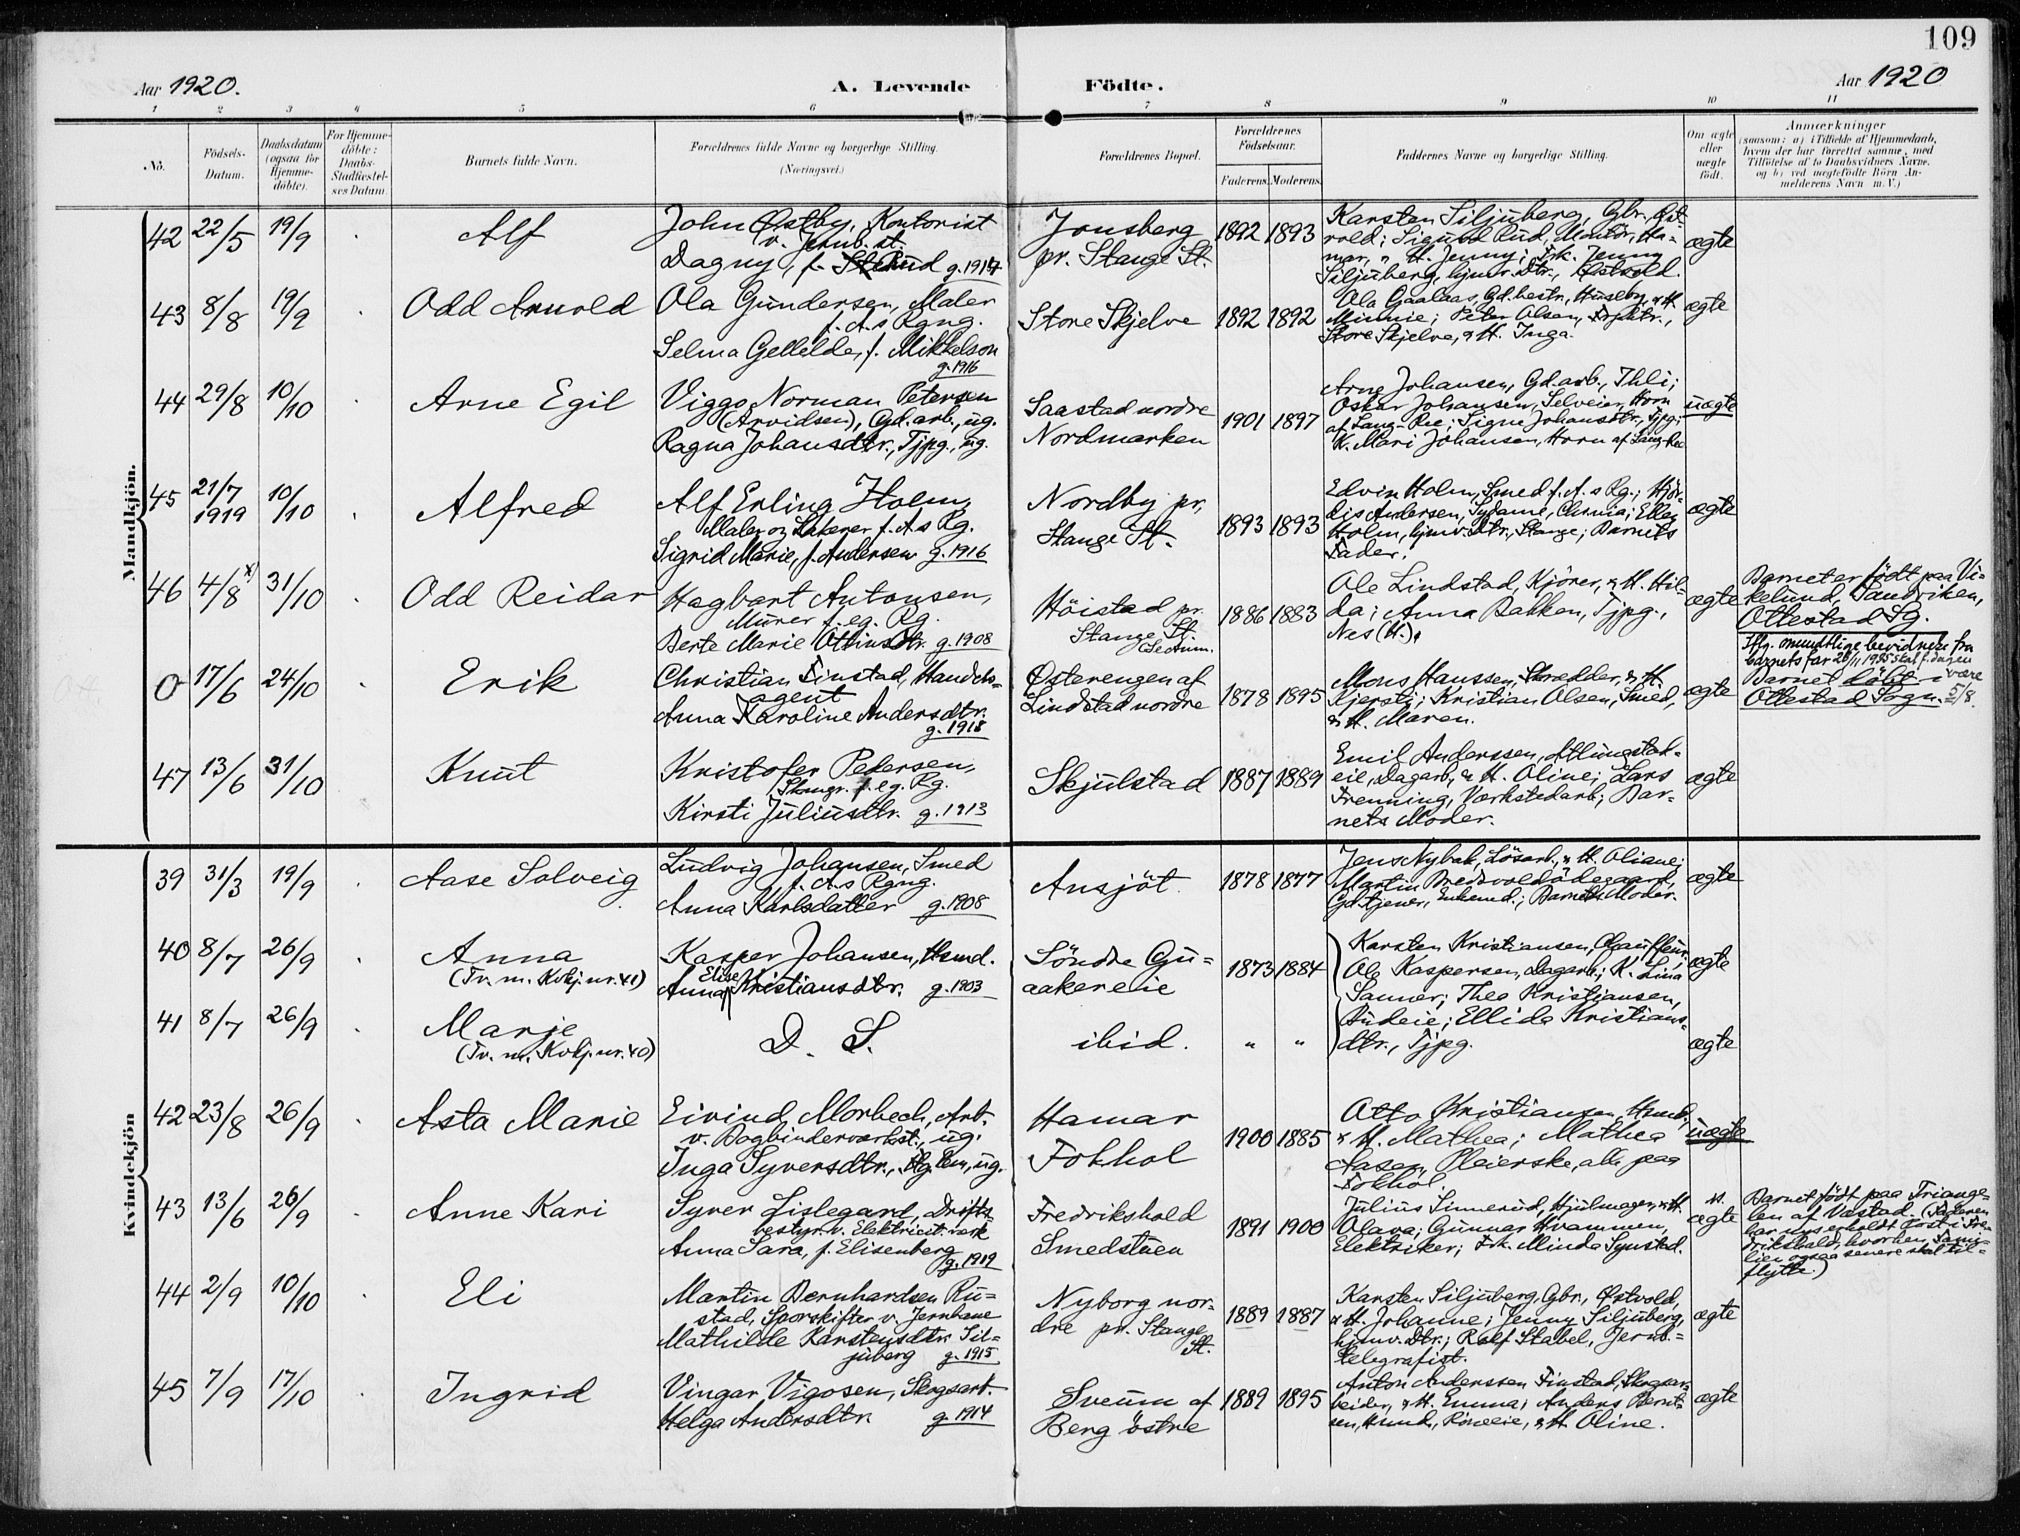 109
Aar 1920.
A. Levende Födte.
Aar 1920
1 2 3 4 5 6 7 8 9 10 11
No.
Födsels-
Datum.
Daabsdatum
(ogsaa for
Hjemme-
döbte).
For Hjemme-
döbte:
Daabs-
Stadfæstel-
ses Datum.
Barnets fulde Navn.
Forældrenes fulde Navne og borgerlige Stilling.
(Næringsvei.)
Forældrenes Bopæl.
Forældrenes
Födselsaar.
Faderens. Moderens.
Faddernes Navne og borgerlige Stilling.
Om ægte
eller
uægte
födt.
Anmærkninger
(saasom: a) i Tilfælde af Hjemmedaab,
hvem der har forrettet samme, med
Tilföielse af to Daabsvidners Navne,
og b) ved uægtefödte Börn An-
melderens Navn m. V.)
Mandkjön.
42 22/5 19/9 Alf
John Østby, Kontorist
v. Jernb. st.
Dagny, f. Rud g. 1917
Jonsberg
pr. Stange St.
1892 1893
Karsten Siljuberg, Gbr. Øst-
vold; Sigurd Rud, Montör, Ha-
mar, & H. Jenny; Frk. Jenny
Siljuberg, hjmv. Dtr., Østvold.
ægte
43 8/8 19/9 Odd Arnold
Ola Gundersen, Maler
f. A.s Rgng.
Selma Gellelde, f. Mikkelson
g. 1916
Store Skjelve
1892 1892
Ola Gaalaas, Gd.bestr., Huseby, & H.
Minnie; Peter Olsen,
Store Skjelve, & H. Inga.
ægte
44 29/8 10/10 Arne Egil
Viggo Norman Petersen
(Arvidsen), Gd.arb., ug.
Ragna Johansdtr., Tjpg., ug.
Saastad nordre
Nordmarken
1901 1897
Arne Johansen, Gd.arb., Ihli;
Oskar Johansen, Selveier, Horn
af Lang-Ree; Signe Johansdtr., Tjpg;
K. Mari Johansen, Horn af Lang-Ree
uægte
45 21/7 1919 10/10 Alfred
Alf Erling Holm,
Maler og Lakerer f. A.s Rg.
Sigrid Marie, f. Andersen g. 1916
Nordby pr.
Stange St.
1893 1893
Edvin Holm, Smed f. A.s Rg.; Hjör-
dis Andersen, Sydame, ; Ellen
Holm, hjmv. Dtr., Stange; Barnets
Fader.
ægte
46 4/8 x) 31/10 Odd Reidar
Hagbart Antonsen,
Murer f. eg. Rg.
Berte Marie Ottinsdtr. g. 1908
Höistad pr.
Stange St.
1886 1883
Ole Lindstad, Kjörer, & H. Hil-
da; Anna Bakken, Tjpg.,
Nes (H.).
ægte
Barnet er födt paa Vi-
kelund, Sandviken,
Ottestad Sg.
Iflg. mundtlige bevidnelse fra
barnets far 26/11 1935 skal f.dagen
være 5/8.
0 17/6 24/10 Erik
Christian Finstad, Handels-
agent
Anna Karoline Andersdtr.
g. 1918
Østerengen af
Lindstad nordre
1878 1895
Mons Hanssen, Skredder, & H.
Kjersti; Kristian Olsen, Smed,
& H. Maren.
ægte
Barnet döbt i
Ottestad Sogn.
47 13/6 31/10 Knut
Kristofer Pedersen,
Skomgr. f. eg. Rg.
Kirsti Juliusdtr. g. 1913
Skjulstad
1887 1889
Emil Anderssen, Atlungstad-
eie, Dagarb, & H. Oline; Lars
Frenning, Værkstedarb; Bar-
nets Moder.
ægte
Kvindekjön
39 31/3 19/9 Aase Solveig
Ludvig Johansen, Smed
f. A.s Rgng.
Anna Karlsdatter g. 1908
Ansjöt.
1878 1877
Jens Nybak, Lösarb., & H. Oliane;
Martin Bredvoldödegaard,
Gd.tjener, Enkemd.; Barnets Moder.
ægte
40 8/7 26/9 Anna
(Tv. m. Kvkj. nr. 41)
Kasper Johansen, Hsmd.
Anna Elise Kristiansdtr. g. 1903
Söndre Gu-
aakereie
1873 1884
Karsten Kristiansen, Chauffeur;
Ole Kaspersen, Dagarb; K. Lina
Sanner; Theo Kristiansen,
Rudeie; Ellida Kristians-
dtr., Tjpg.
ægte
41 8/7 26/9 Marje
(Tv. m. Kvkj. nr. 40)
D. S.
ibid.
" "
ægte
42 23/8 26/9 Asta Marie
Eivind Morbech, Arb.
v. Bogbinderværkst., ug.
Inga Syversdtr., ug.
Hamar
Fokhol
1900 1885
Otto Kristiansen, Hsmd,
& H. Mathea; Mathea
Aasen, Meierske, alle paa
Fokhol.
uægte
43 13/6 26/9 Anne Kari
Syver Lislegard, Drifts-
bestyr. v. Elektricit. verk
Anna Sara, f. Elisenberg
g. 1919
Fredrikshald
Smedstuen
1891 1900
Julius Sinnerud, Hjulmager, & H.
Olava; Gunnar Kvammen,
Elektriker; Frk. Minda Synstad.
ægte
Barnet födt paa Triange-
len af Vastad. (Faderen
har nys erholdt Post i Fre-
drikshald, hvorhen Fami-
lien ogsaa senere skal til-
flytte.)
44 2/9 10/10 Eli
Martin Bernhardsen Ru-
stad, Sporskifter v. Jernbane
Mathilde Karstensdtr. Sil-
juberg g. 1915
Nyborg nor-
dre pr. Stange
St.
1889 1887
Karsten Siljuberg, Gbr., Østvold,
& H. Johanne; Jenny Siljuberg,
hjmv. Dtr.; Rolf Stabel, Jernb-
telegrafist.
ægte
45 7/9 17/10 Ingrid
Vingar Vigosen, Skogsarb.
Helga Andersdtr. g. 1914
Sveum af
Berg östre
1889 1895
Anton Anderssen Finstad, Skogsar-
beider, & H. Emma; Anders Bernt-
sen, Hsmd, Röneeie, & H. Oline.
ægte